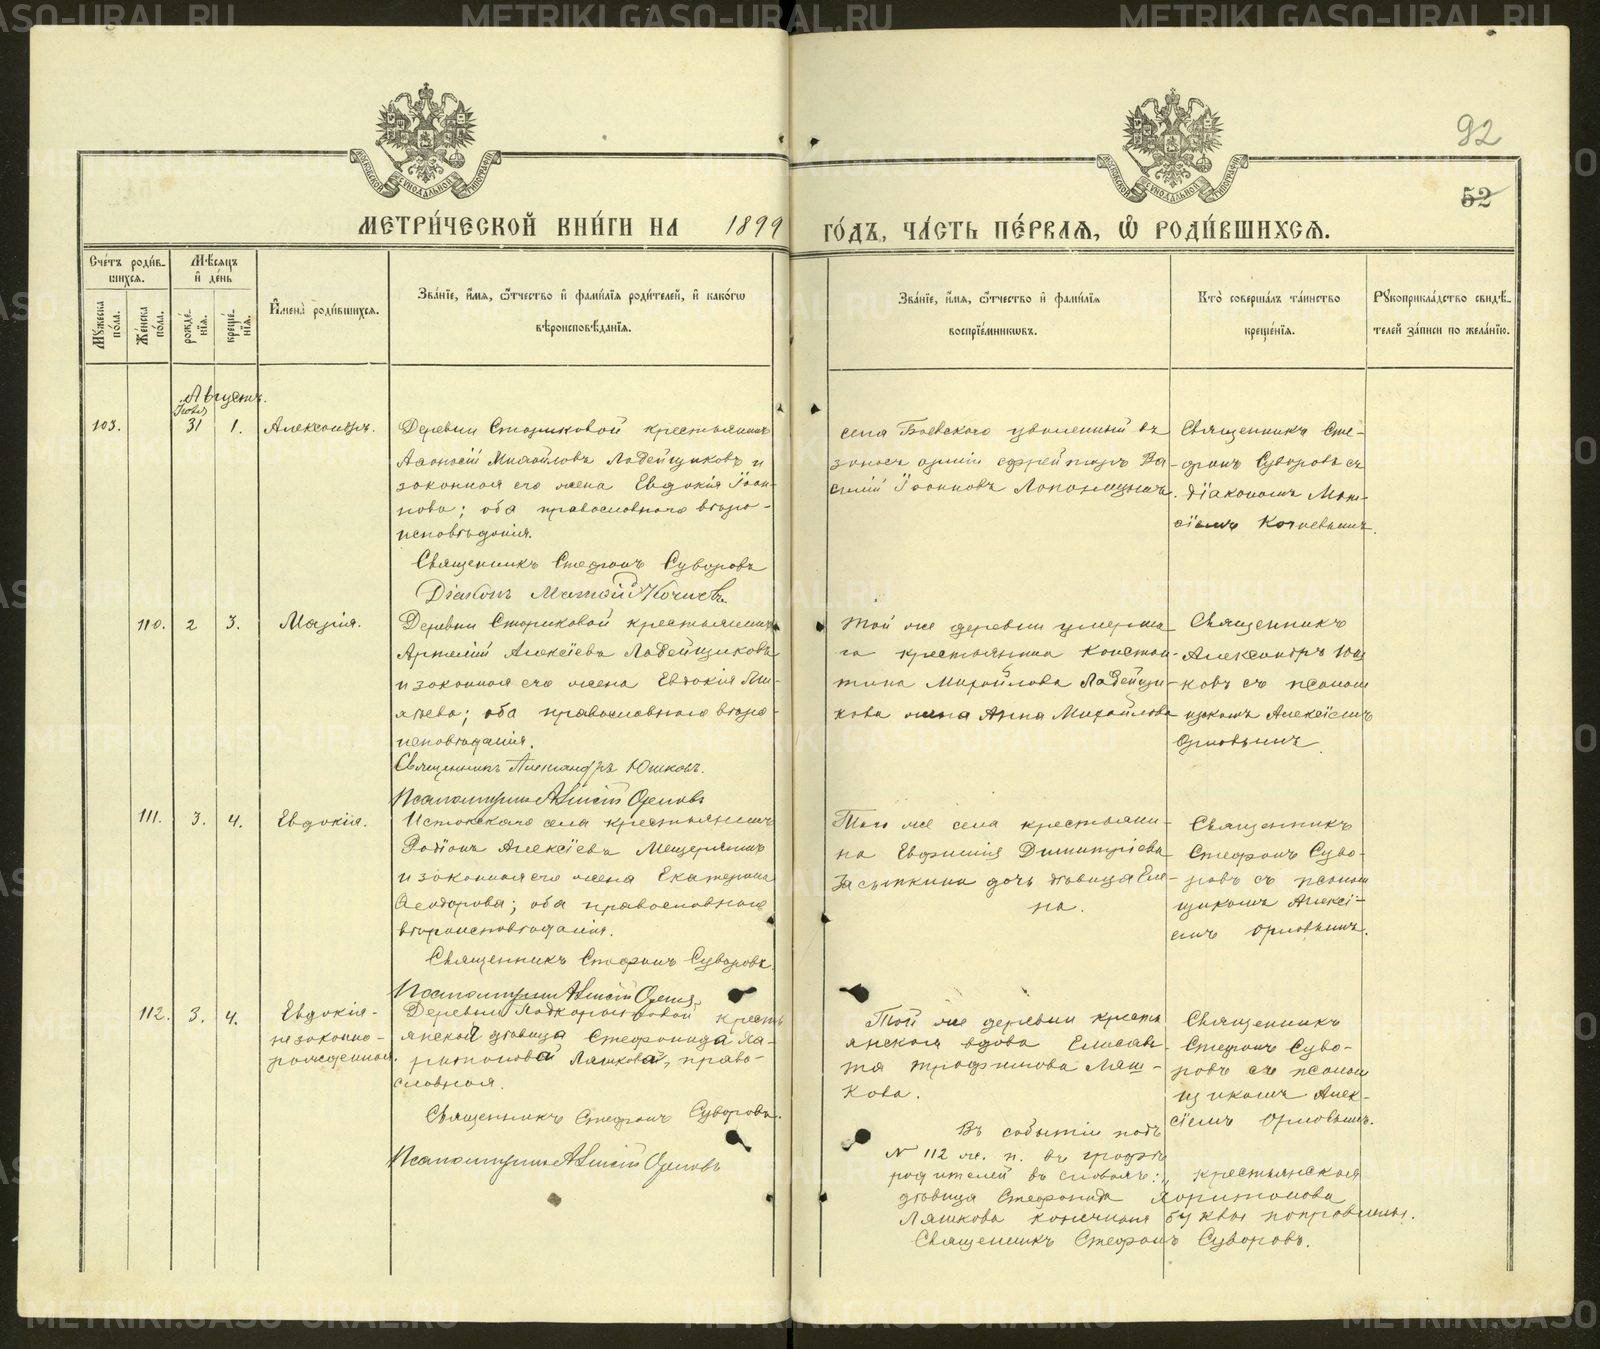 92
52
МЕТРИ́ЧЕСКОЙ КНИ́ГИ НА 1899 ГО́ДЪ, ЧА́СТЬ ПЕ́РВАЯ, Ѽ РОДИ́ВШИХСЯ.
Сче́тъ роди́в-
шихся.
Му́жеска по́ла.
Же́нска по́ла.
Мѣ́сяцъ и҆ де́нь
рожде́нїя.
креще́нїя.
И҆мена̀ роди́вшихся.
Зва́нїе, и҆́мя, ѻ҆́тчество и҆ фами́лїя роди́телей, и҆ како́гѡ
вѣроисповѣ́данїя.
Зва́нїе, и҆́мя, ѻ҆́тчество и҆ фами́лїя
воспрїе́мникѡвъ.
Кто̀ соверша́лъ та́инство
креще́нїя.
Рꙋкоприкла́дство свидѣ́-
телей за́писи по жела́нїю.
Августъ.
Іюля
103. 31 1. Александръ.
Деревни Стариковой крестьянинъ
Афонасій Михайловъ Ладейщиковъ и
законная его жена Евдокія Іоан-
нова; оба православнаго вѣро-
исповѣданія.
Священникъ Стефанъ Суворовъ
Діаконъ Матѳій Кочневъ
села Боевского уволенный въ
запасъ арміи ефрейторъ Ва-
силій Іоанновъ
Священникъ Сте-
фанъ Суворовъ съ
діакономъ Мат-
ѳіемъ Кочневымъ.
110. 2 3. Марія.
Деревни Стариковой крестьянинъ
Артемій Алексѣевъ Ладейщиковъ
и законная его жена Евдокія Ли-
оба православнаго вѣро-
исповѣданія.
Священникъ Александръ Юшковъ.
Псаломщикъ Алексій Орловъ
Той же деревни умерша-
го крестьянина Констан-
тина Михайлова Ладейщи-
кова жена Анна Михайлова
Священникъ
Александръ Юш-
ковъ съ псалом-
щикомъ Алексіемъ
Орловымъ.
111. 3. 4. Евдокія.
Истокскаго села крестьянинъ
Родіонъ Алексіевъ Мещеряковъ
и законная его жена Екатерина
Ѳеодорова; оба православнаго
вѣроисповѣданія.
Священникъ Стефанъ Суворовъ
Псаломщикъ Алексій Орловъ
Того же села крестьяни-
на Евфимія Димитріева
Засыпкина дочь дѣвица Еле-
на.
Священникъ
Стефанъ Суво-
ровъ съ псалом-
щикомъ Алексі-
емъ Орловымъ.
112. 3. 4. Евдокія-
незаконно-
рожденная.
Деревни кресть-
янской дѣвица Стефанида Ха-
ритонова Ляшкова, право-
славная.
Священникъ Стефанъ Суворовъ.
Псаломщикъ Алексій Орловъ
Той же деревни кресть-
янская вдова Елисаве-
та Трофимова Ляш-
кова.
Священникъ
Стефанъ Суво-
ровъ съ псалом-
щикомъ Алек-
сіемъ Орловымъ.
Въ событіи подъ
№ 112 ж. п. въ графѣ
родителей въ словахъ: „крестьянская
дѣвица Стефанида Харитонова
Ляшкова конечныя буквы поправлены.
Священникъ Стефанъ Суворовъ.
METRIKI.GASO-URAL.RU